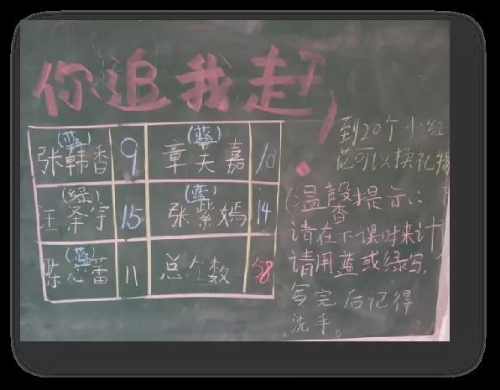 你追我赶
到20个小红
花可以换礼物
(蓝) (蓝)
张韩香 9 章天嘉 10
(绿) (蓝)
王泽宇 15 张紫嫣 14
(蓝)
陈思蕾 11 总个数 58
(温馨提示:
请在下课时来计
请用蓝或绿写,
写完后记得
洗手。